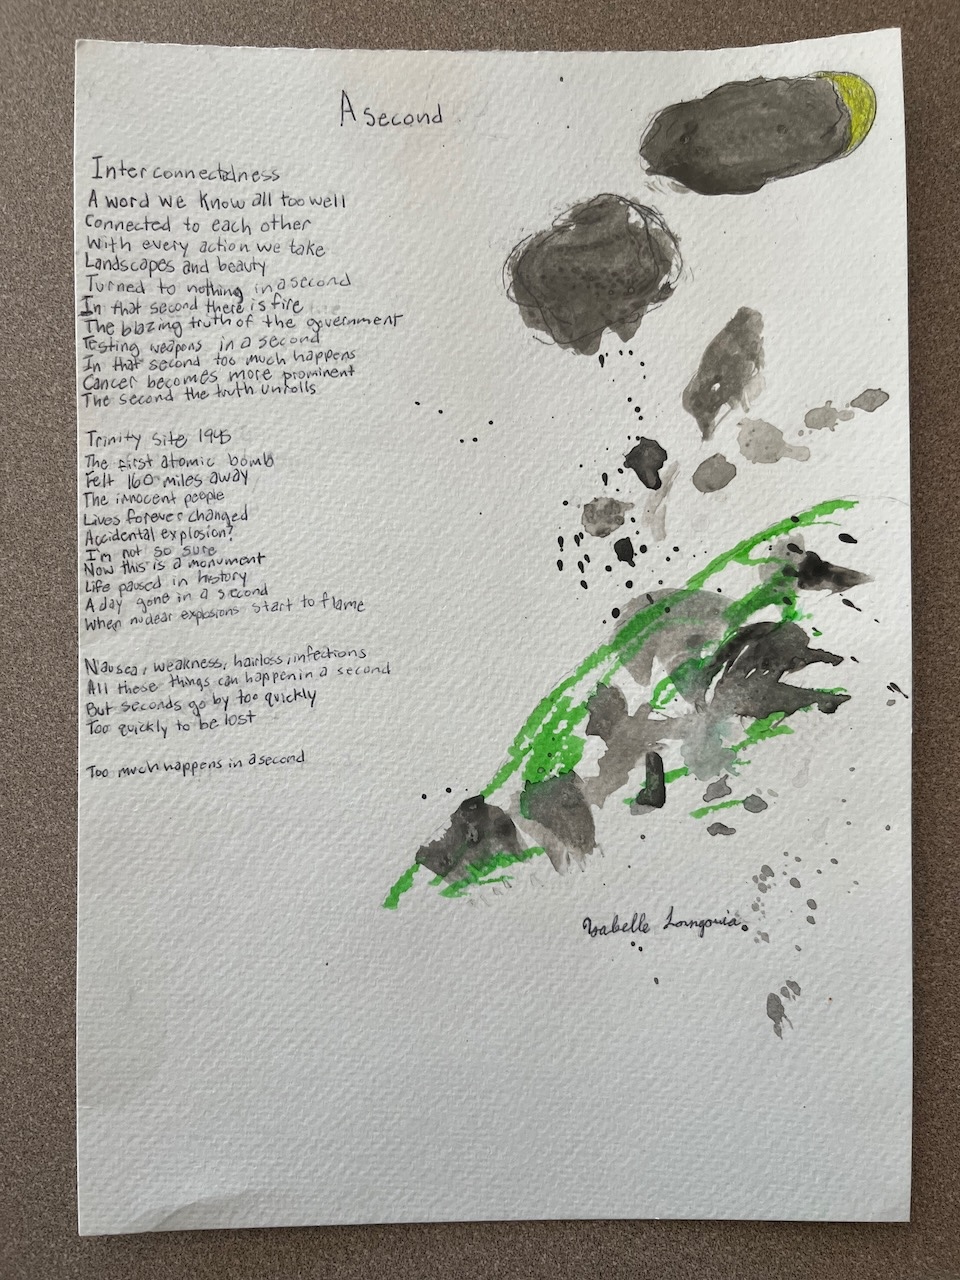 A second
Interconnectedness
A word we know all too well
Connected to each other
With every action we take
Landscapes and beauty
Turned to nothing in a second
In that second there is fire
The blazing truth of the government
Testing weapons in a second
In that second too much happens
Cancer becomes more prominent
The second the truth unrolls
Trinity Site 1945
The first atomic bomb
Felt 160 miles away
The innocent people
Lives forever changed
Accidental explosion?
I'm not so sure
Now this is a monument
Life paused in history
A day gone in a second
When nuclear explosions start to flame
Nausea, weakness, hairloss, infections
All these things can happen in a second
But seconds go by too quickly
Too quickly to be lost
Too much happens in a second
Isabelle Longoria